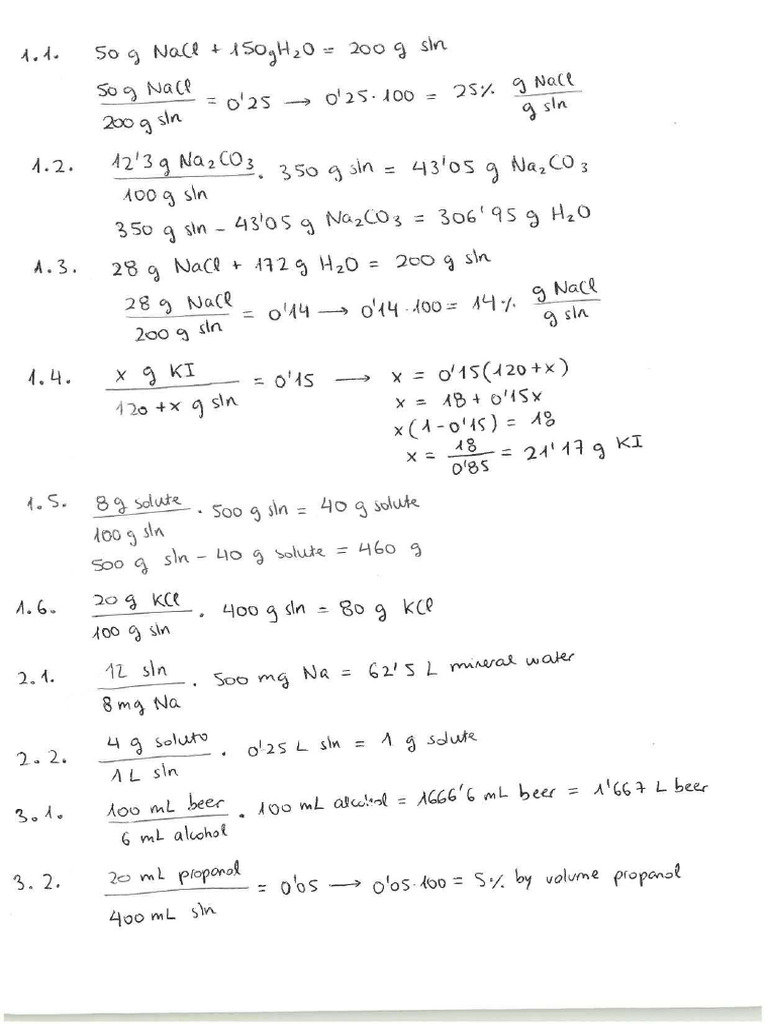 1.1. 50 g NaCl + 150g H2O = 200 g sln
50 g NaCl / 200 g sln = 0'25 → 0'25·100 = 25% g NaCl / g sln
1.2. 12'3 g Na2CO3 / 100 g sln · 350 g sln = 43'05 g Na2CO3
350 g sln - 43'05 g Na2CO3 = 306'95 g H2O
1.3. 28 g NaCl + 172 g H2O = 200 g sln
28 g NaCl / 200 g sln = 0'14 → 0'14·100 = 14% g NaCl / g sln
1.4. x g KI / 120 + x g sln = 0'15 → x = 0'15(120+x)
x = 18 + 0'15x
x(1-0'15) = 18
x = 18 / 0'85 = 21'17 g KI
1.5. 8 g solute / 100 g sln · 500 g sln = 40 g solute
500 g sln - 40 g solute = 460 g
1.6. 20 g KCl / 100 g sln · 400 g sln = 80 g KCl
2.1. 12 sln / 8 mg Na · 500 mg Na = 62'5 L mineral water
2.2. 4 g soluto / 1 L sln · 0'25 L sln = 1 g solute
3.1. 100 mL beer / 6 mL alcohol · 100 mL alcohol = 1666'6 mL beer = 1'667 L beer
3.2. 20 mL propanol / 400 mL sln = 0'05 → 0'05·100 = 5% by volume propanol